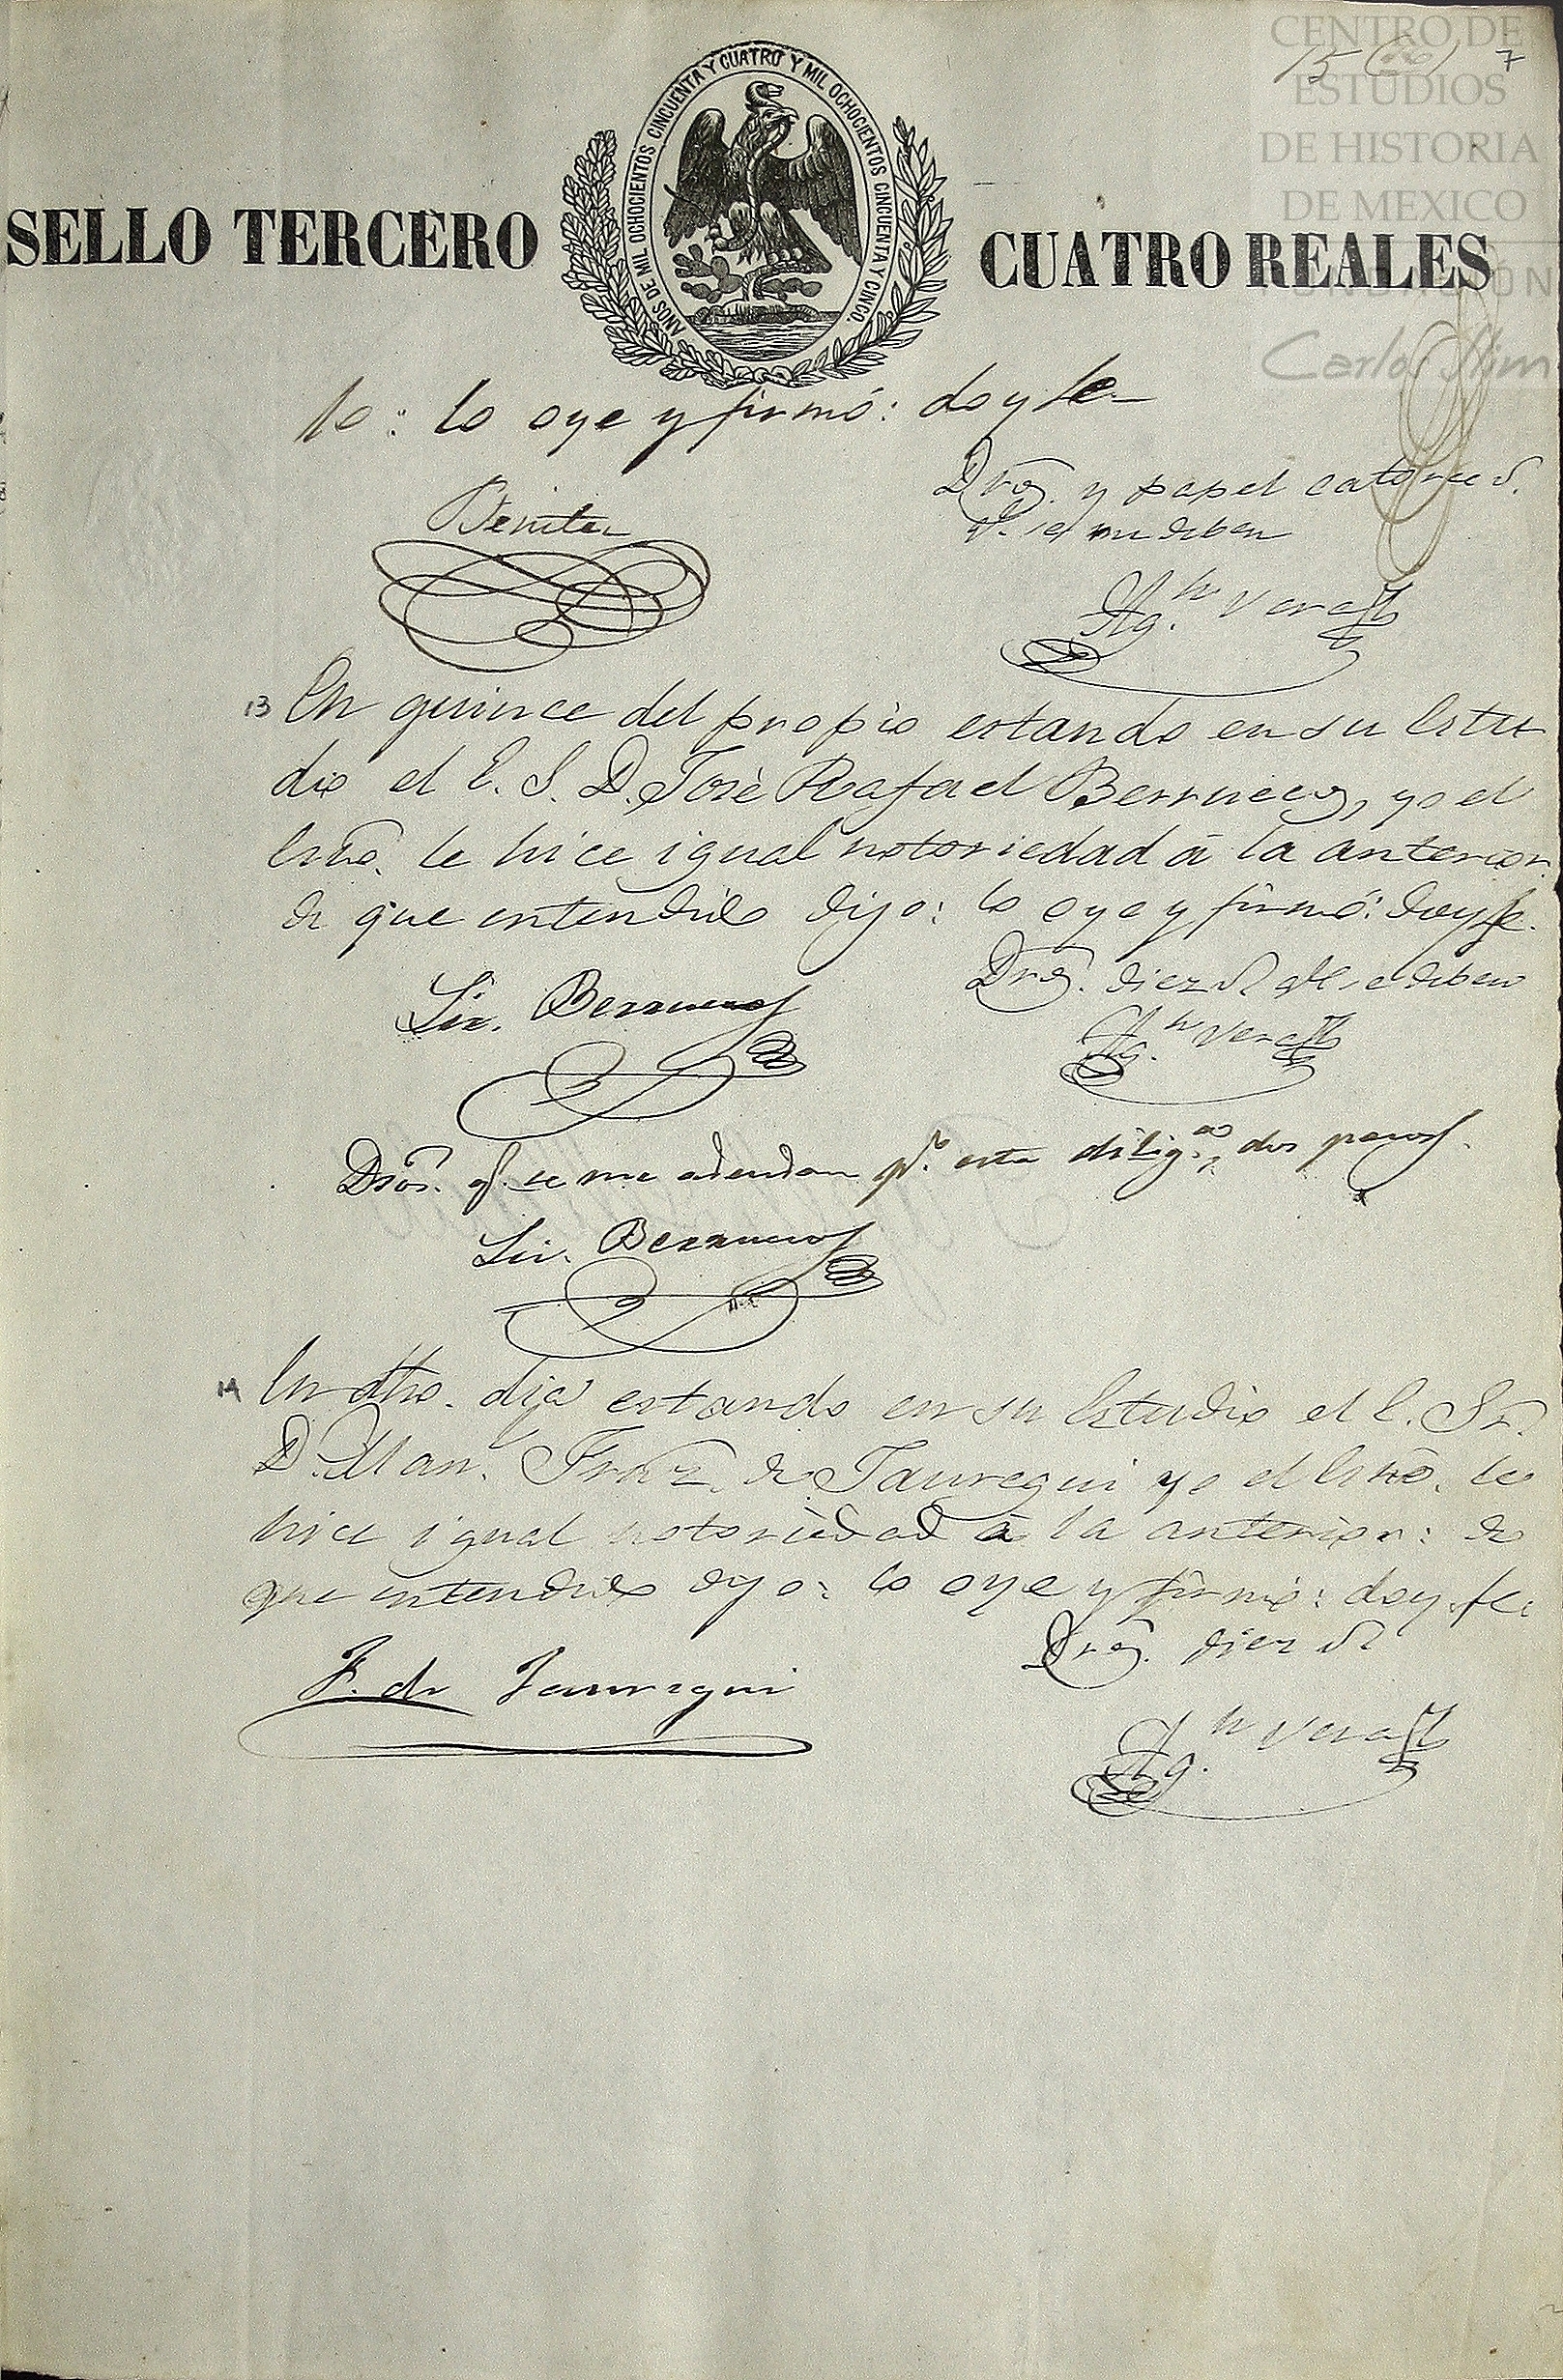 CENTRO DE
ESTUDIOS
DE HISTORIA
DE MEXICO
FUNDACIÓN
Carlos Slim
15 7
SELLO TERCERO CUATRO REALES
AÑOS DE MIL OCHOCIENTOS CINCUENTA Y CUATRO Y MIL OCHOCIENTOS CINCUENTA Y CINCO.
to: lo oye y firmó: doy fe
Dros. y papel catorce r.
q.e se me deben
Benitez
Ag.n Vera
13 En quince del propio estando en su Estu
dio el E. S. D. José Rafael Berruecos, yo el
Esno. le hice igual notoriedad á la anterior:
de que entendido dijo: lo oye y firmó: doy fe.
Dros. diez r. q.e se deben
Lic. Berruecos
Ag.n Vera
Dros. q. se me adeudan p.r esta dilig.a, dos pesos.
Lic. Berruecos
14 En dho. dia estando en su Estudio el E. Sr.
D. Man.l Frnz. de Jauregui yo el Esno. le
hice igual notoriedad á la anterior: de
que entendido dijo: lo oye y firmó: doy fe:
Dros. diez r.
F. de Jauregui
Ag.n Vera